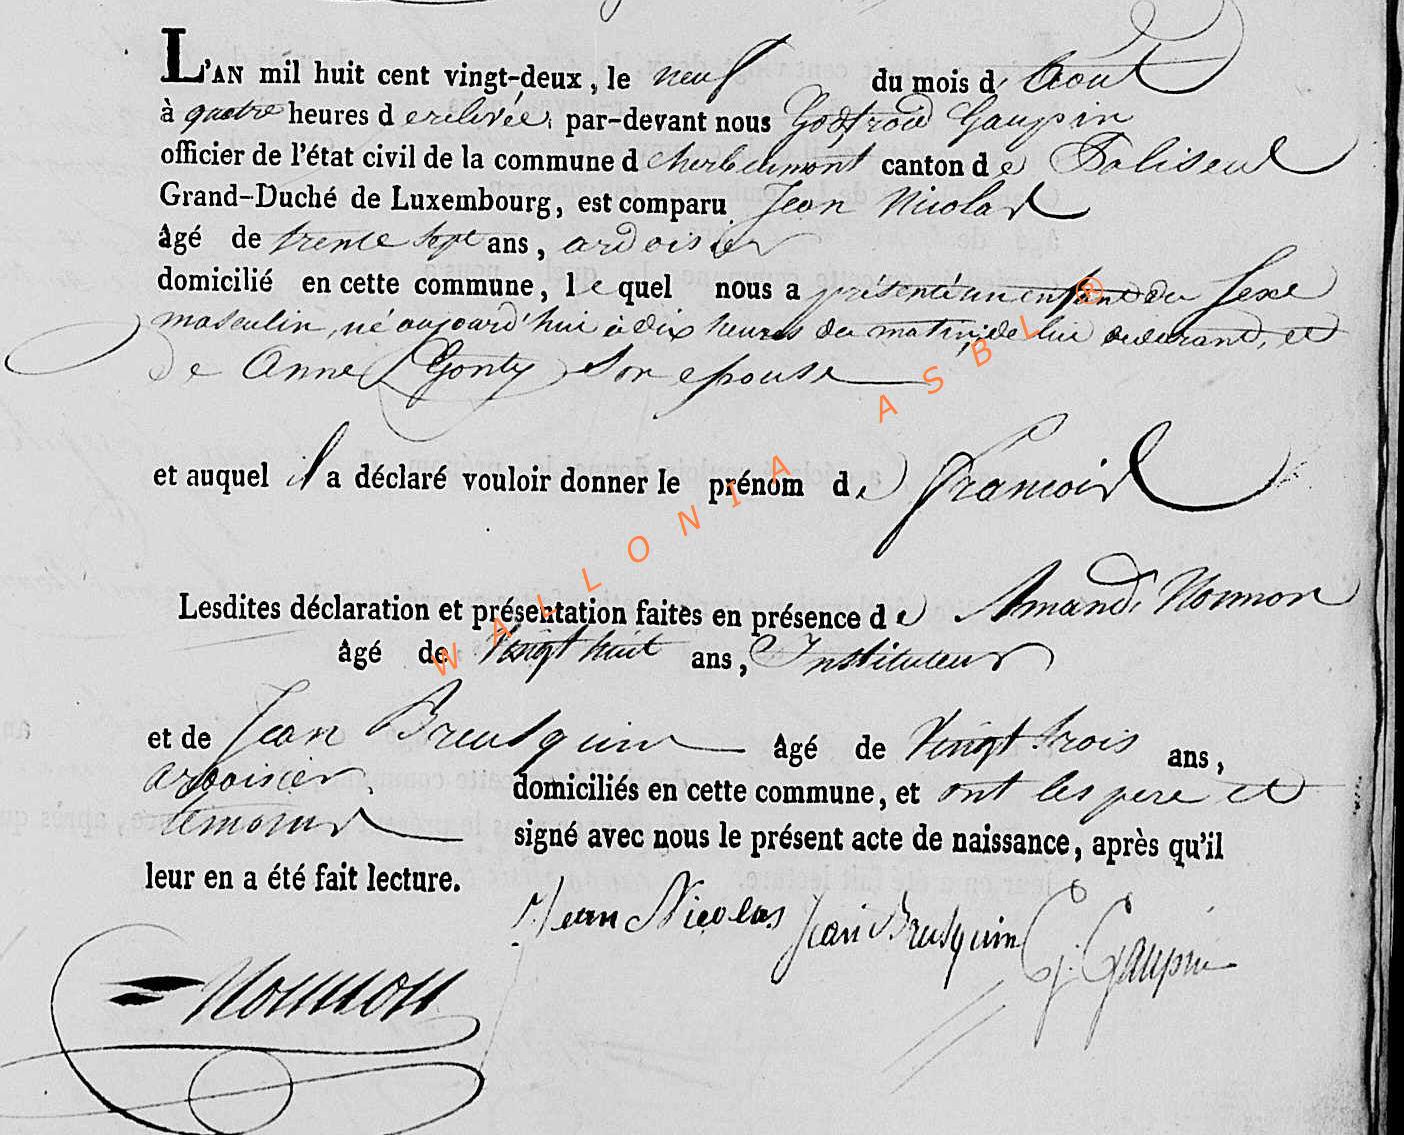 L'AN mil huit cent vingt-deux, le neuf du mois d'Aout
à quatre heures d erelevée, par-devant nous Godfroid Gaupin
officier de l'état civil de la commune d herbeumont canton d e Paliseul
Grand-Duché de Luxembourg, est comparu Jean Nicolas
âgé de trente sept ans, ardoisier
domicilié en cette commune, l e quel nous a présenté un enfant du Sexe
masculin, né aujourd'hui à dix heures du matin, de lui déclarant, et
de Anne Gonty Son epouse
et auquel il a déclaré vouloir donner le prénom d e Francois
Lesdites déclaration et présentation faites en présence d e Amand Noumon
âgé de Vingt huit ans, Instituteur
et de Jean Breusquin âgé de Vingt trois ans,
ardoisier domiciliés en cette commune, et ont les pere et
témoins signé avec nous le présent acte de naissance, après qu'il
leur en a été fait lecture.
Jean Nicolas Jean Brusquin G. Gaupin
Noumon
WALLONIA ASBL ®